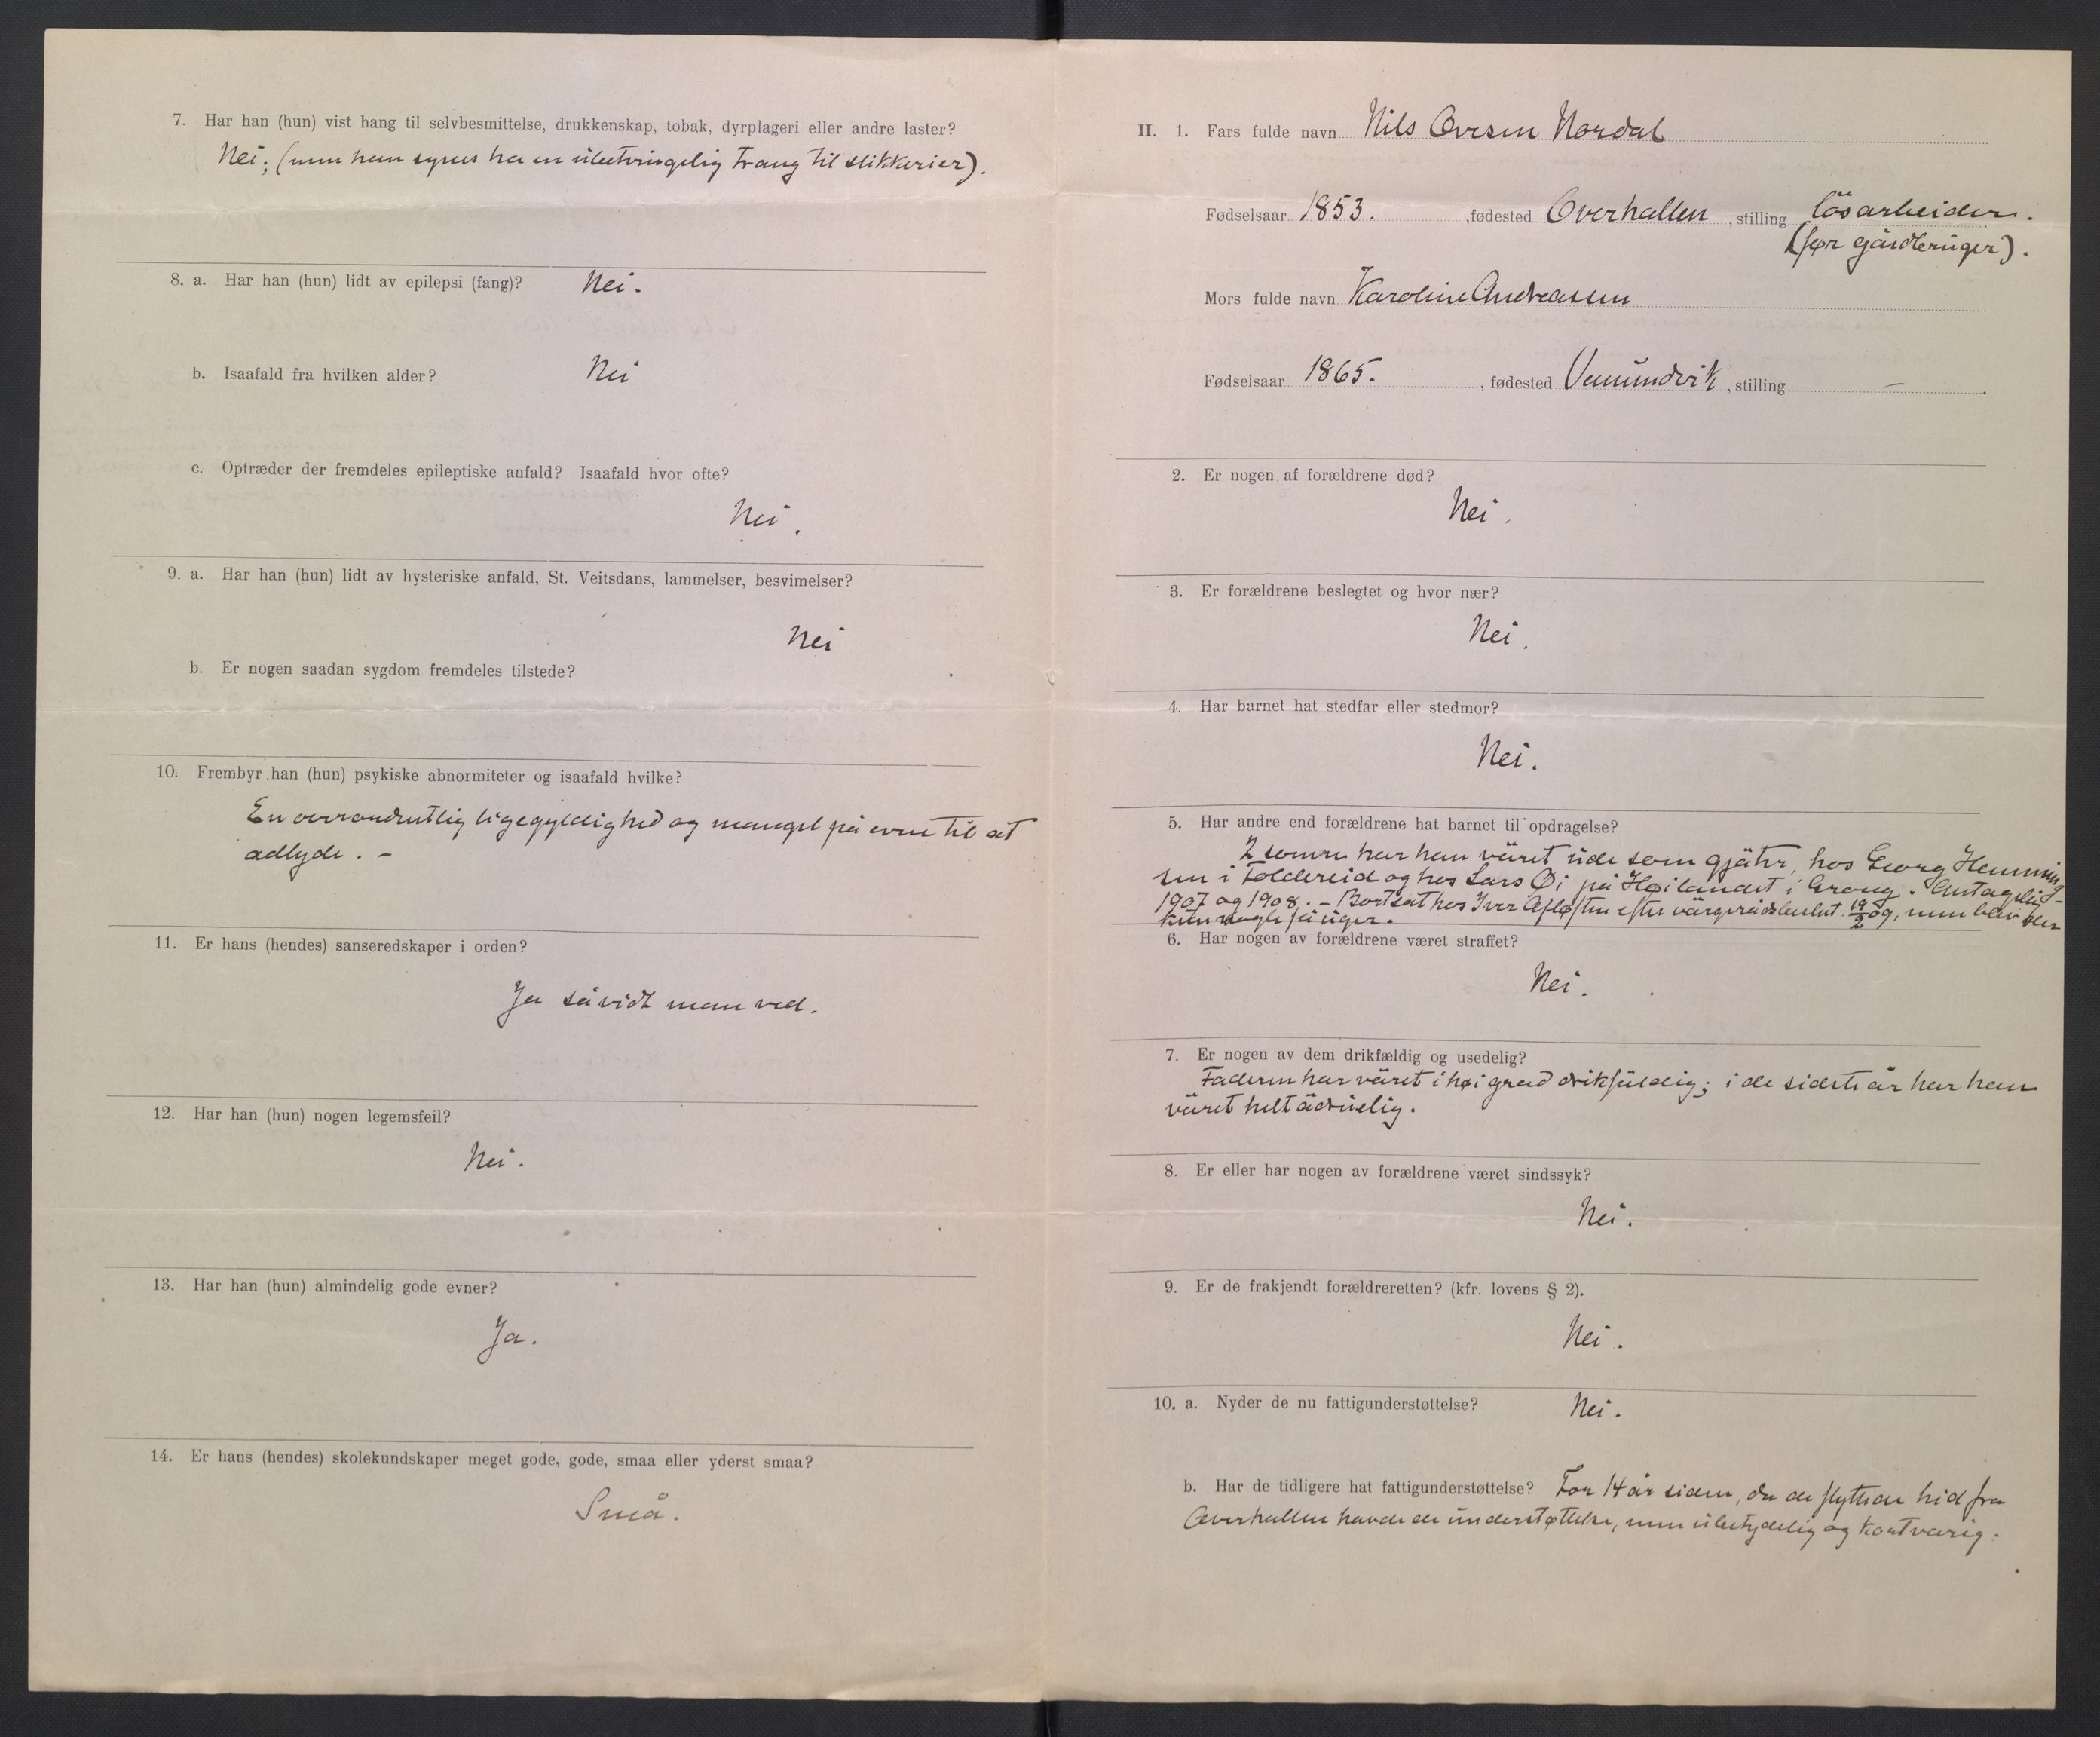 7. Har han (hun) vist hang til selvbesmittelse, drukkenskap, tobak, dyrplageri eller andre laster?
Nei; (men han synes ha en ubetvingelig trang til slikkerier).
8. a. Har han (hun) lidt av epilepsi (fang)? Nei.
b. Isaafald fra hvilken alder? Nei
c. Optræder der fremdeles epileptiske anfald? Isaafald hvor ofte?
Nei.
9. a. Har han (hun) lidt av hysteriske anfald, St. Veitsdans, lammelser, besvimelser?
Nei
b. Er nogen saadan sygdom fremdeles tilstede?
10. Frembyr han (hun) psykiske abnormiteter og isaafald hvilke?
En overordentlig ligegyldighed og mangel på evne til at
adlyde. -
11. Er hans (hendes) sanseredskaper i orden?
Ja såvidt man ved.
12. Har han (hun) nogen legemsfeil?
Nei.
13. Har han (hun) almindelig gode evner?
Ja.
14. Er hans (hendes) skolekundskaper meget gode, gode, smaa eller yderst smaa?
Små.
II. 1. Fars fulde navn Nils Ovesen Nordal
Fødselsaar 1853. , fødested Overhallen , stilling løsarbeider.
(før gårdbruger).
Mors fulde navn Karoline Andreasen
Fødselsaar 1865. , fødested Vemundvik , stilling —
2. Er nogen af forældrene død?
Nei.
3. Er forældrene beslegtet og hvor nær?
Nei.
4. Har barnet hat stedfar eller stedmor?
Nei.
5. Har andre end forældrene hat barnet til opdragelse?
2 somre har han været ude som gjæter, hos Georg Hemming-
sen i Foldereid og hos Lars Øi på Høilandet i Grong. Antagelig
1907 og 1908. - Bortsat hos Iver Afløsten efter værgerådsbeslut. 19/2 09, men blev der
kun nogle få uger.
6. Har nogen av forældrene været straffet?
Nei.
7. Er nogen av dem drikfældig og usedelig?
Faderen har været i høi grad drikfældig; i de sidste år har han
været helt ædruelig.
8. Er eller har nogen av forældrene været sindssyk?
Nei.
9. Er de frakjendt forældreretten? (kfr. lovens § 2).
Nei.
10. a. Nyder de nu fattigunderstøttelse? Nei.
b. Har de tidligere hat fattigunderstøttelse? For 14 år siden, da de flyttede hid fra
Overhallen havde de understøttelse, men ubetydelig og kortvarig.